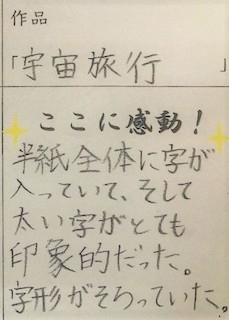 作品
「宇宙旅行」
ここに感動！
半紙全体に字が
入っていて、そして
太い字がとても
印象的だった。
字形がそろっていた。